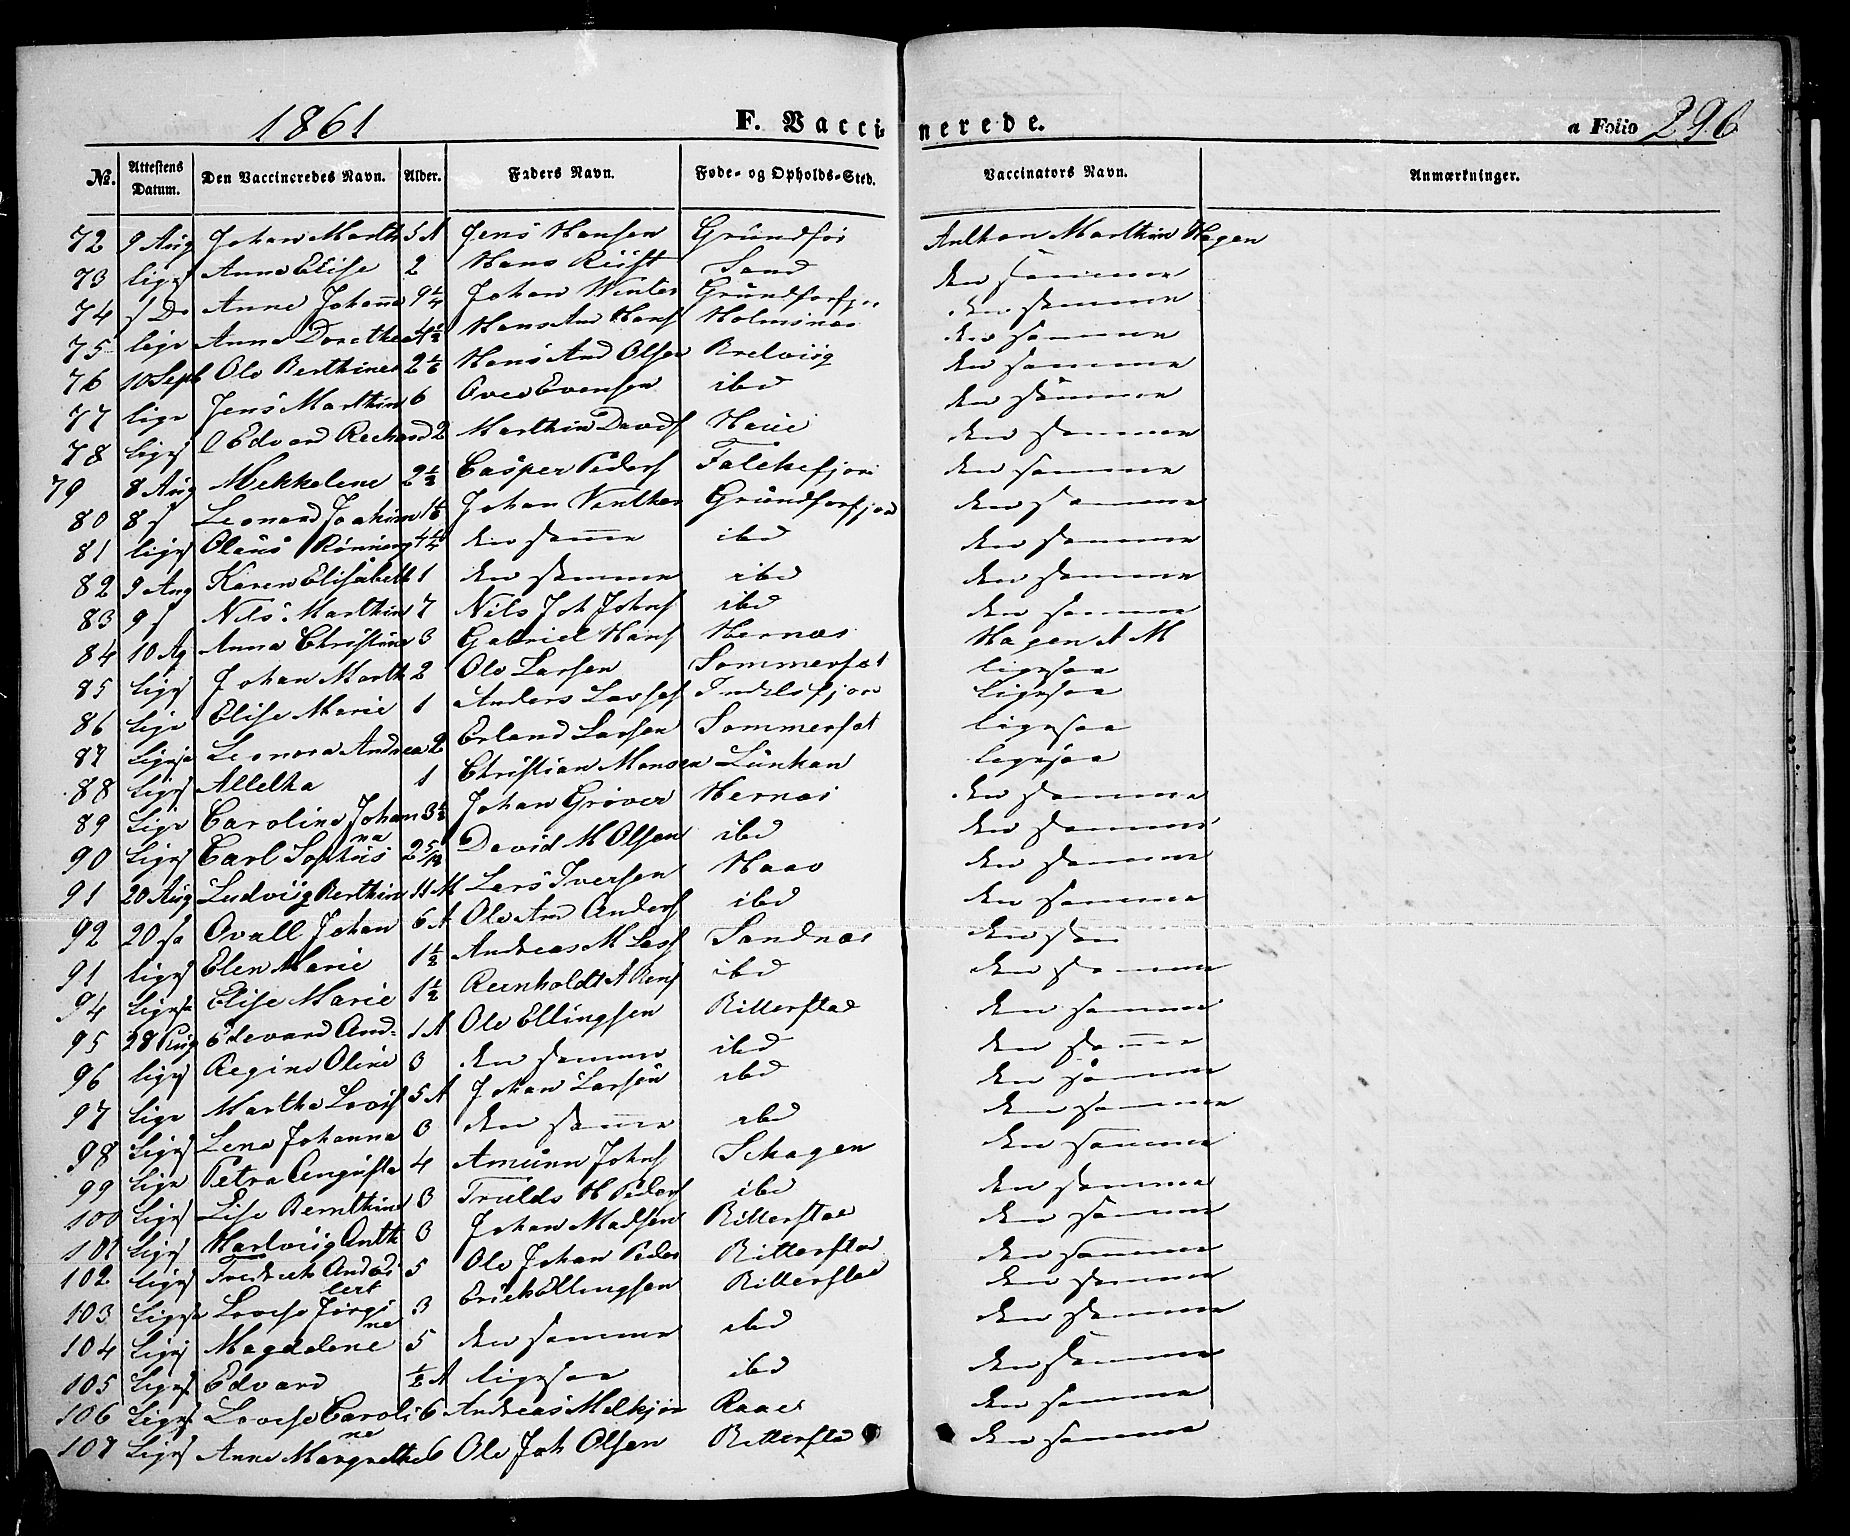 1861 F. Vaccinerede. a Folio 296
No. Attestens Datum. Den Vaccineredes Navn. Alder. Faders Navn. Føde- og Opholds-Sted. Vaccinators Navn. Anmærkninger.
72 9 Aug Johan Marth 5 A Jens Hansen Grundfør Anthon Marthin Hagen
73 ligs Anne Elise 2 Hans Sand den samme
74 Do Anne Johanne 9 1/4 Johan Winter Grundforfj den samme
75 lige Anne Dorethea 4 1/2 Hans And Hans Holmsnæs den samme
76 10 Sept Ole Berthines 2 1/6 Hans And Olsen Bredviig den samme
77 lige Jens Marthin 6 Ove Evensen ibd den samme
78 ligs Edvard Rechard 2 Marthin Davids den samme
79 8 Aug Mekkeline 2 1/2 Casper Peders Falchefjor den samme
80 8 s Leonard Joakim 1 1/6 Johan Vinther Grundforfjord den samme
81 ligs Olaus Rønning 4 1/4 den samme ibd den samme
82 9 Aug Karen Elisabeth 1 den samme ibd den samme
83 9 s Nils Marthin 7 Nils Joh Johns ibd den samme
84 10 Ag Anna Christine 3 Gabriel Hans Hernæs Hagen A M
85 ligs Johan Marth 2 Ole Larsen Sommersæt ligesaa
86 lige Elise Marie 1 Anders Indelsfjor ligesaa
87 Ligesa Leonora Andrea 2 Erland Larsen Sommersæt ligesaa
88 ligs Alletha 1 Christian Monsen Lunkan ligesaa
89 Lige Caroline Johan 3 1/2 Johan Grøver Hernæs den samme
na
90 Liges Carl Sophus 2 5/12 David M Olsen ibd den samme
91 20 Aug Ludviig Berthin 11 M Lars Iversen Haav den samme
92 20 sa Ovall Johan 6 A Ole And Anders ibd den samme
91 liges Elen Marie 1 1/2 Andreas M Lars Sandnæs den sam
94 Ligesa Elise Marie 1 1/2 Reenholdt A Bens ibd den samme
95 28 Aug Edevard And- 1 A Ole Ellingsen Ritterstad den samme
96 liges Regine Oline 3 den samme ibd den samme
97 Lige Martha Lovis 5 A Johan Larsen ibd den samme
98 Ligs Lena Johanna 3 den samme ibd den samme
99 Lige Petra Augusta 4 Amunn Johns Schagen den samme
100 Liges Lise Bernthine 3 Trulds H Peders ibd den samme
101 Ligs Hartviig Anth 3 Johan Madsen Ritterstad den samme
102 ligs Fredrich Andæs 5 Ole Johan Peder Ritterstad den samme
103 Ligesa Lovise Jørgi 3 Erich Ellingsen Ritterstad den samme
ne
104 Ligs Magdelene 5 den samme ibd den samme
105 Liges Edvard 1/2 A ligesaa ibd den samme
106 Liges Lovise Caroli 6 Andreas Melkjor Raaes den samme
ne
107 Ligs Anne Margrethe 6 Ole Joh Olsen Ritterstad den samme